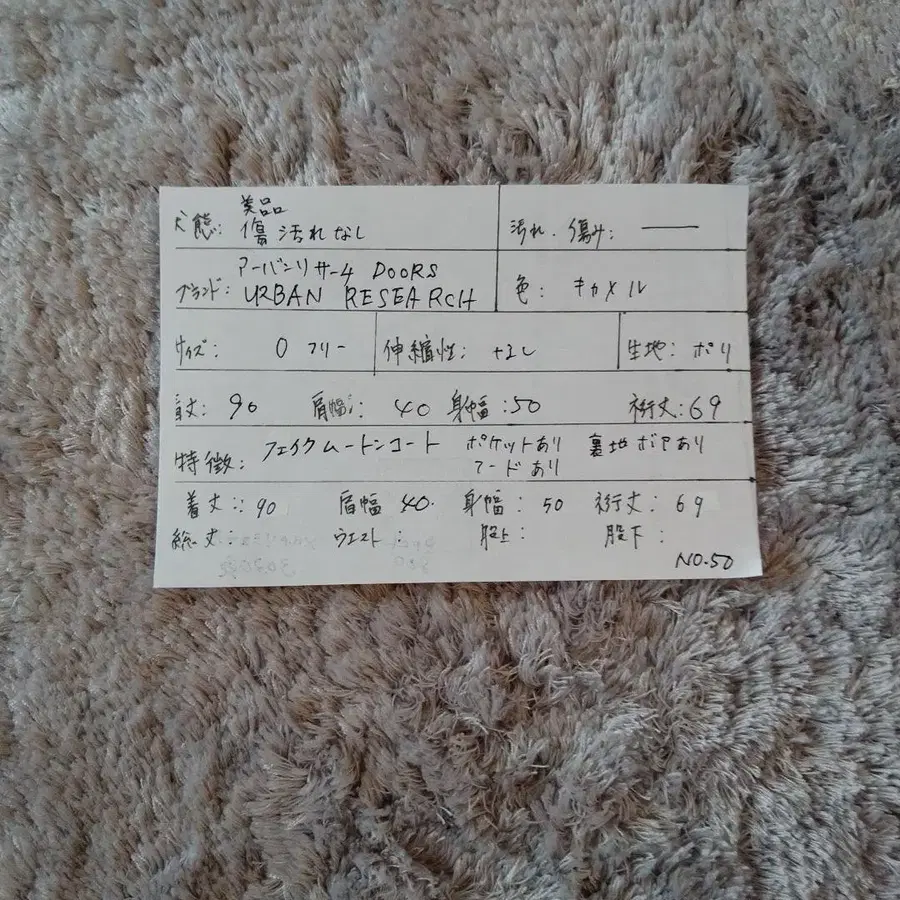 美品
状態: 傷 汚れ なし
汚れ. 傷み: ―
アーバンリサーチ DOORS
ブランド: URBAN RESEARCH
色: キャメル
サイズ: 0 フリー 伸縮性: なし 生地: ポリ
着丈: 90 肩幅: 40 身幅: 50 裄丈: 69
特徴: フェイクムートンコート ポケットあり 裏地ボアあり
フードあり
着丈: 90 肩幅 40. 身幅: 50 裄丈: 69
総丈: ウエスト: 股上: 股下:
NO.50